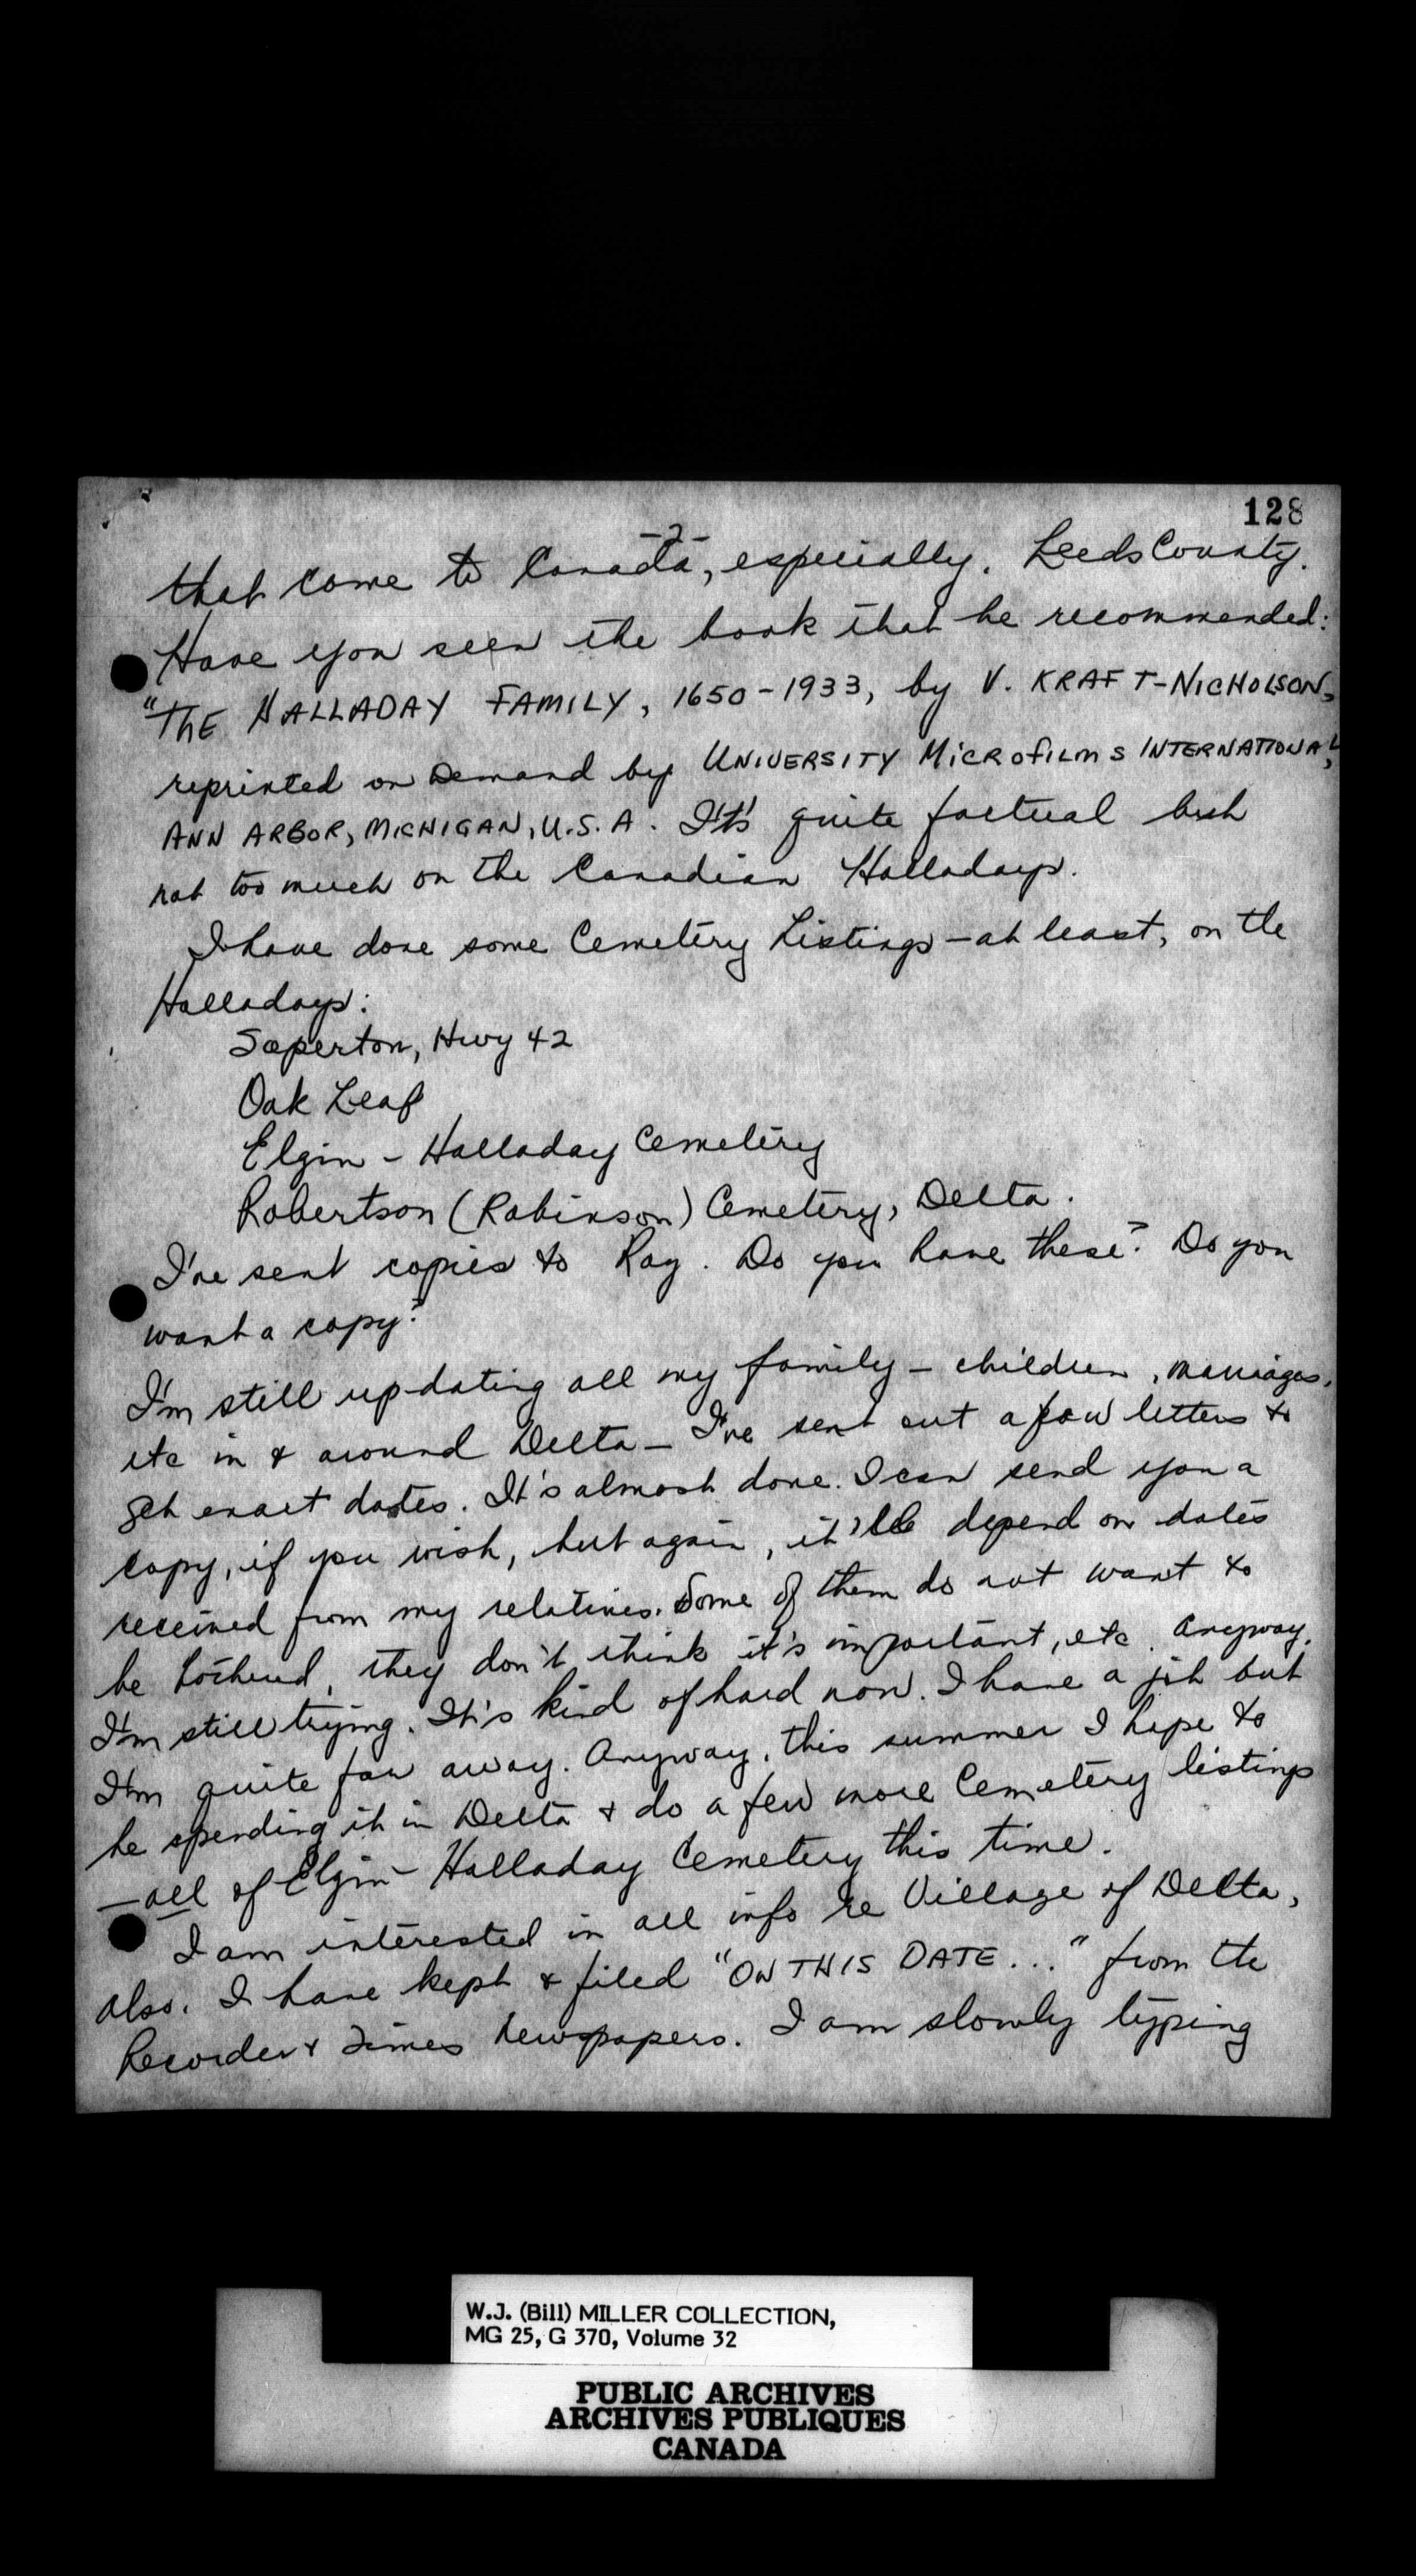 128
-2-
that came to Canada, especially, Leeds County.
Have you seen the book that he recommended:
"THE HALLADAY FAMILY, 1650-1933, by V. KRAFT-NICHOLSON,
reprinted on Demand by UNIVERSITY MICROFILMS INTERNATIONAL,
ANN ARBOR, MICHIGAN, U.S.A. It's quite factual but
not too much on the Canadian Halladays.
I have done some Cemetery Listings - at least, on the
Halladays:
Soperton, Hwy 42
Oak Leaf
Elgin - Halladay Cemetery
Robertson (Robinson) Cemetery, Delta.
I've sent copies to Ray. Do you have these? Do you
want a copy?
I'm still up-dating all my family - children, marriages,
etc in & around Delta - I've sent out a few letters to
get exact dates. It's almost done. I can send you a
copy, if you wish, but again, it'll depend on dates
received from my relatives. Some of them do not want to
be bothered, they don't think it's important, etc. Anyway,
I'm still trying. It's kind of hard now. I have a job but
I'm quite far away. Anyway, this summer I hope to
be spending it in Delta & do a few more Cemetery listings
- all of Elgin - Halladay Cemetery this time.
I am interested in all info re Village of Delta,
also. I have kept & filed "ON THIS DATE..." from the
Recorder & Times newspapers. I am slowly typing
W.J. (Bill) MILLER COLLECTION,
MG 25, G 370, Volume 32
PUBLIC ARCHIVES
ARCHIVES PUBLIQUES
CANADA